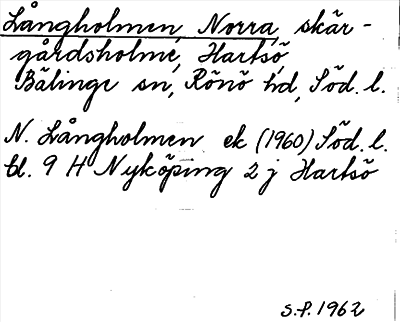 Långholmen, Norra, skär-
gårdsholme, Hartsö,
Bälinge sn, Rönö hd, Söd. l.
N. Långholmen ek (1960) Söd. l.
bl. 9 H Nyköping 2 j Hartsö
S.P. 1962